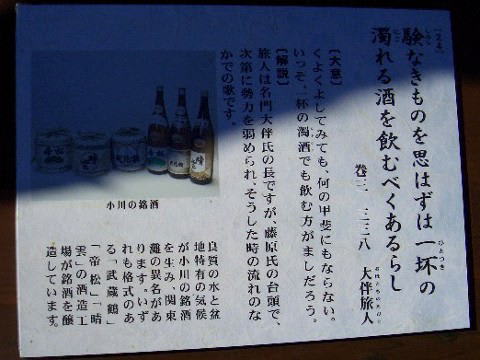 験なきものを思はずは一坏の
しるし
ひとつき
濁れる酒を飲むべくあるらし
にご
巻三、三三八 大伴旅人
おおとものたびと
【大意】
くよくよしてみても、何の甲斐にもならない。
いっそ、一杯の濁酒でも飲む方がましだろう。
【解説】
旅人は名門大伴氏の長ですが、藤原氏の台頭で、
次第に勢力を弱められ、そうした時の流れのな
かでの歌です。
小川の銘酒
良質の水と盆
地特有の気候
が小川の銘酒
を生み、関東
灘の異名があ
ります。いず
れも格式のあ
る「武蔵鶴」
「帝松」「晴
雲」の酒造工
場が銘酒を醸
造しています。